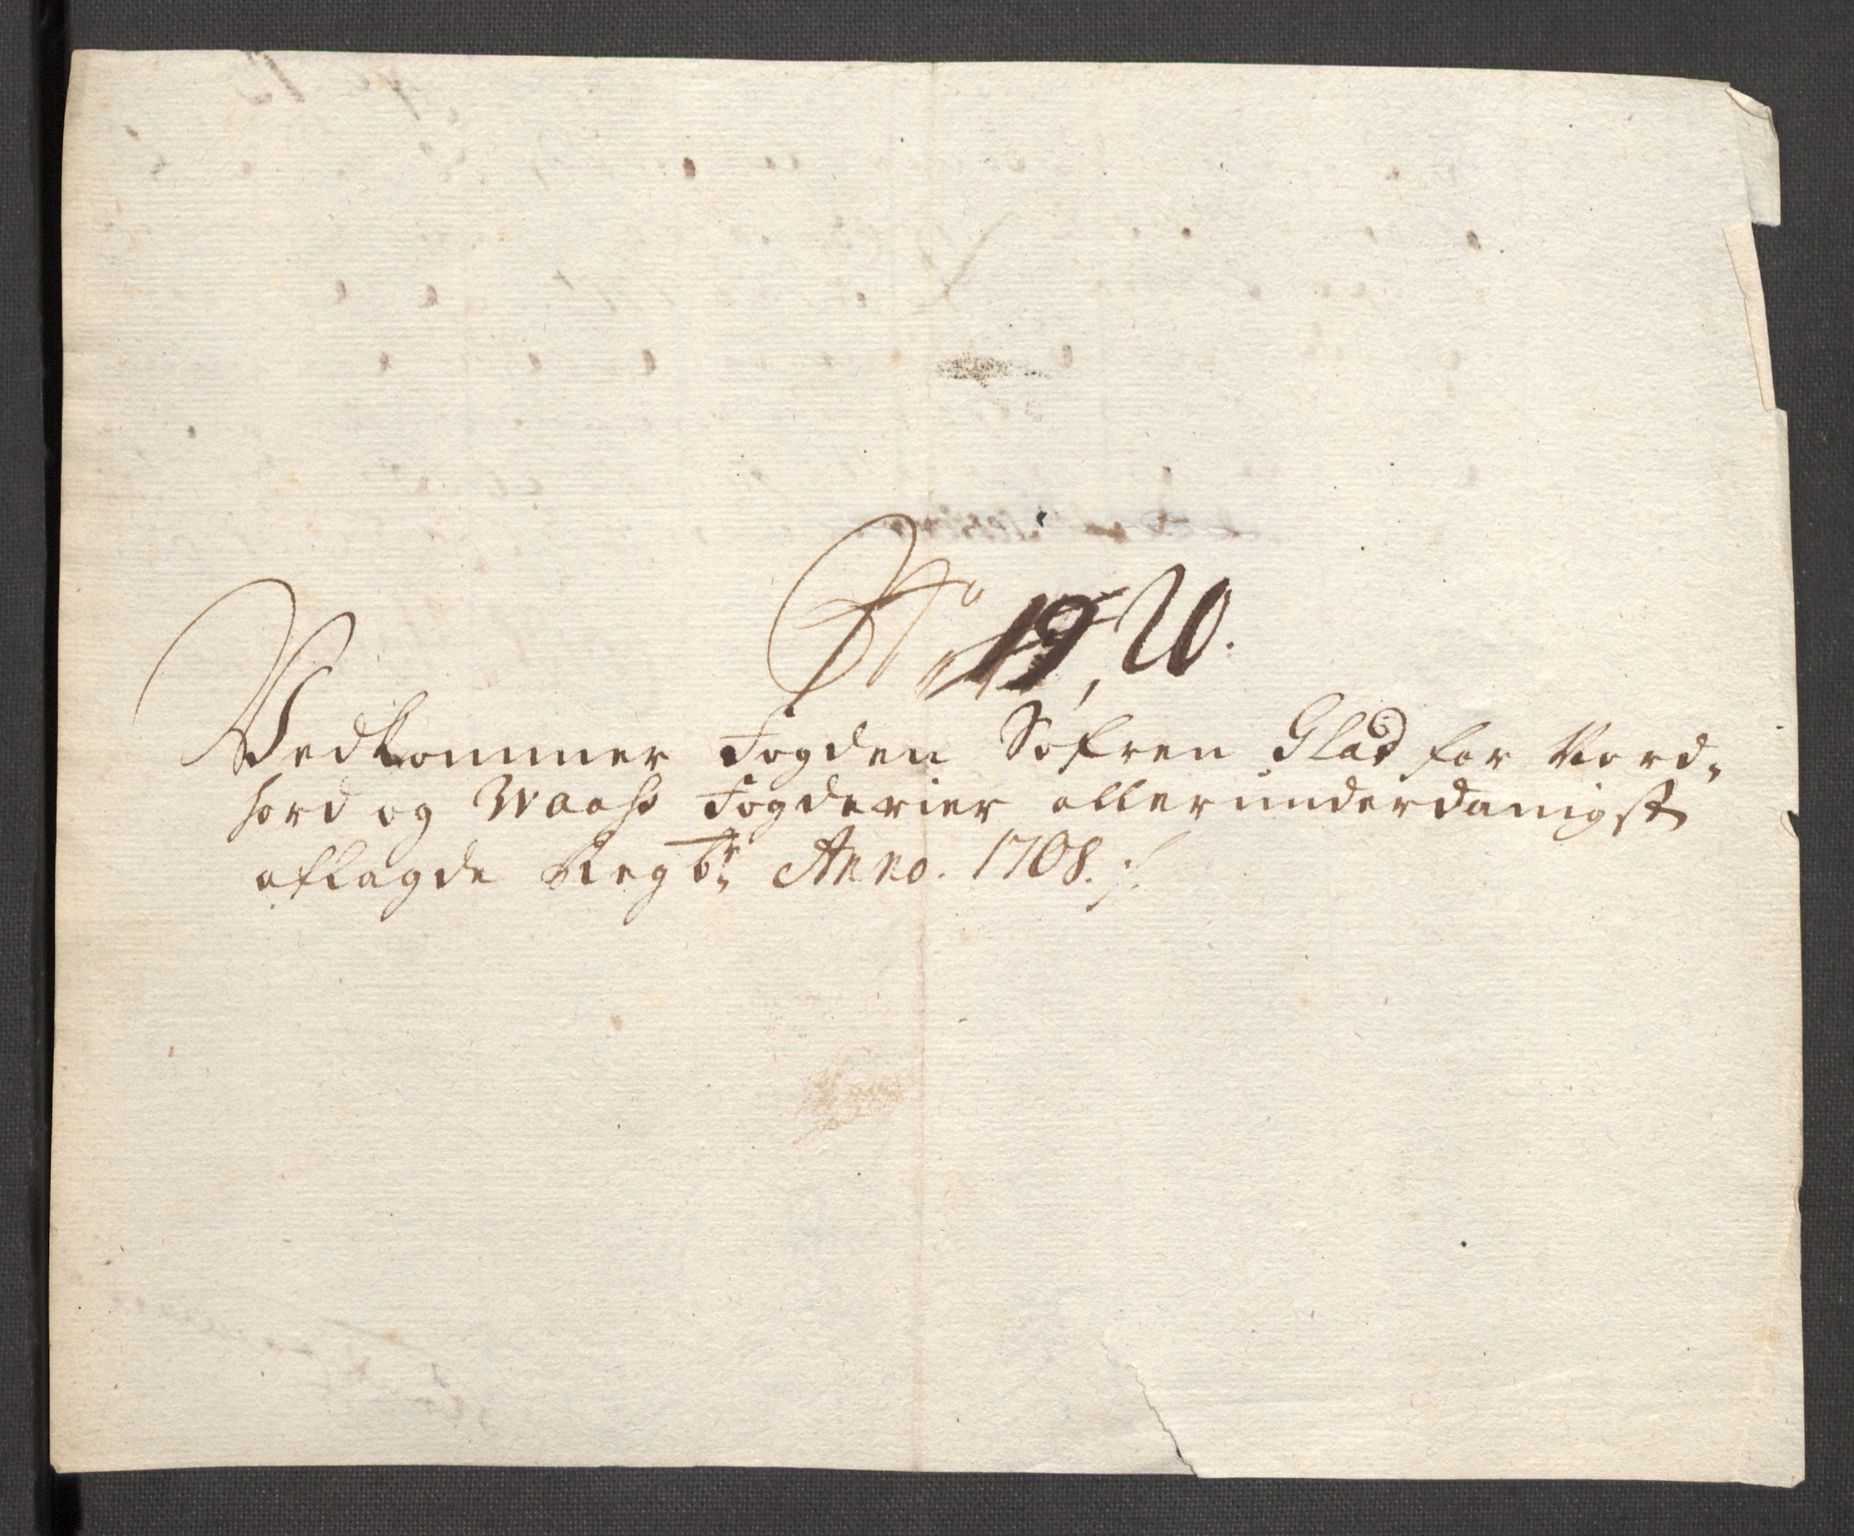 No 19, 20.
Vedkommer Fogden Søfren Glad for Nord-
hord og Waass Fogderier allerunderdanigst
aflagde Regbr Anno. 1708. /.